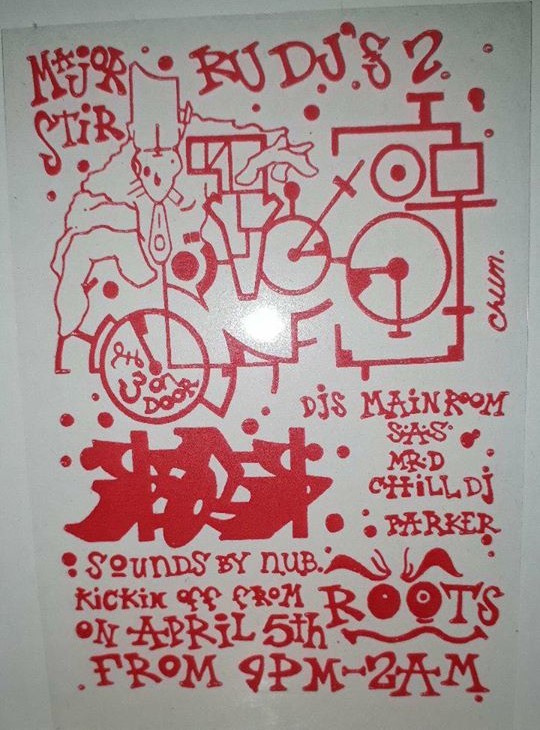 MAJOR
STIR
RU DJ'S 2
chum.
£3 on
DOOR
DJS MAINROOM
SAS
MR.D
CHILL DJ
PARKER
SOUNDS BY NUB.
KICKIN OFF FROM
ROOTS
ON APRIL 5th
FROM 9PM-2AM